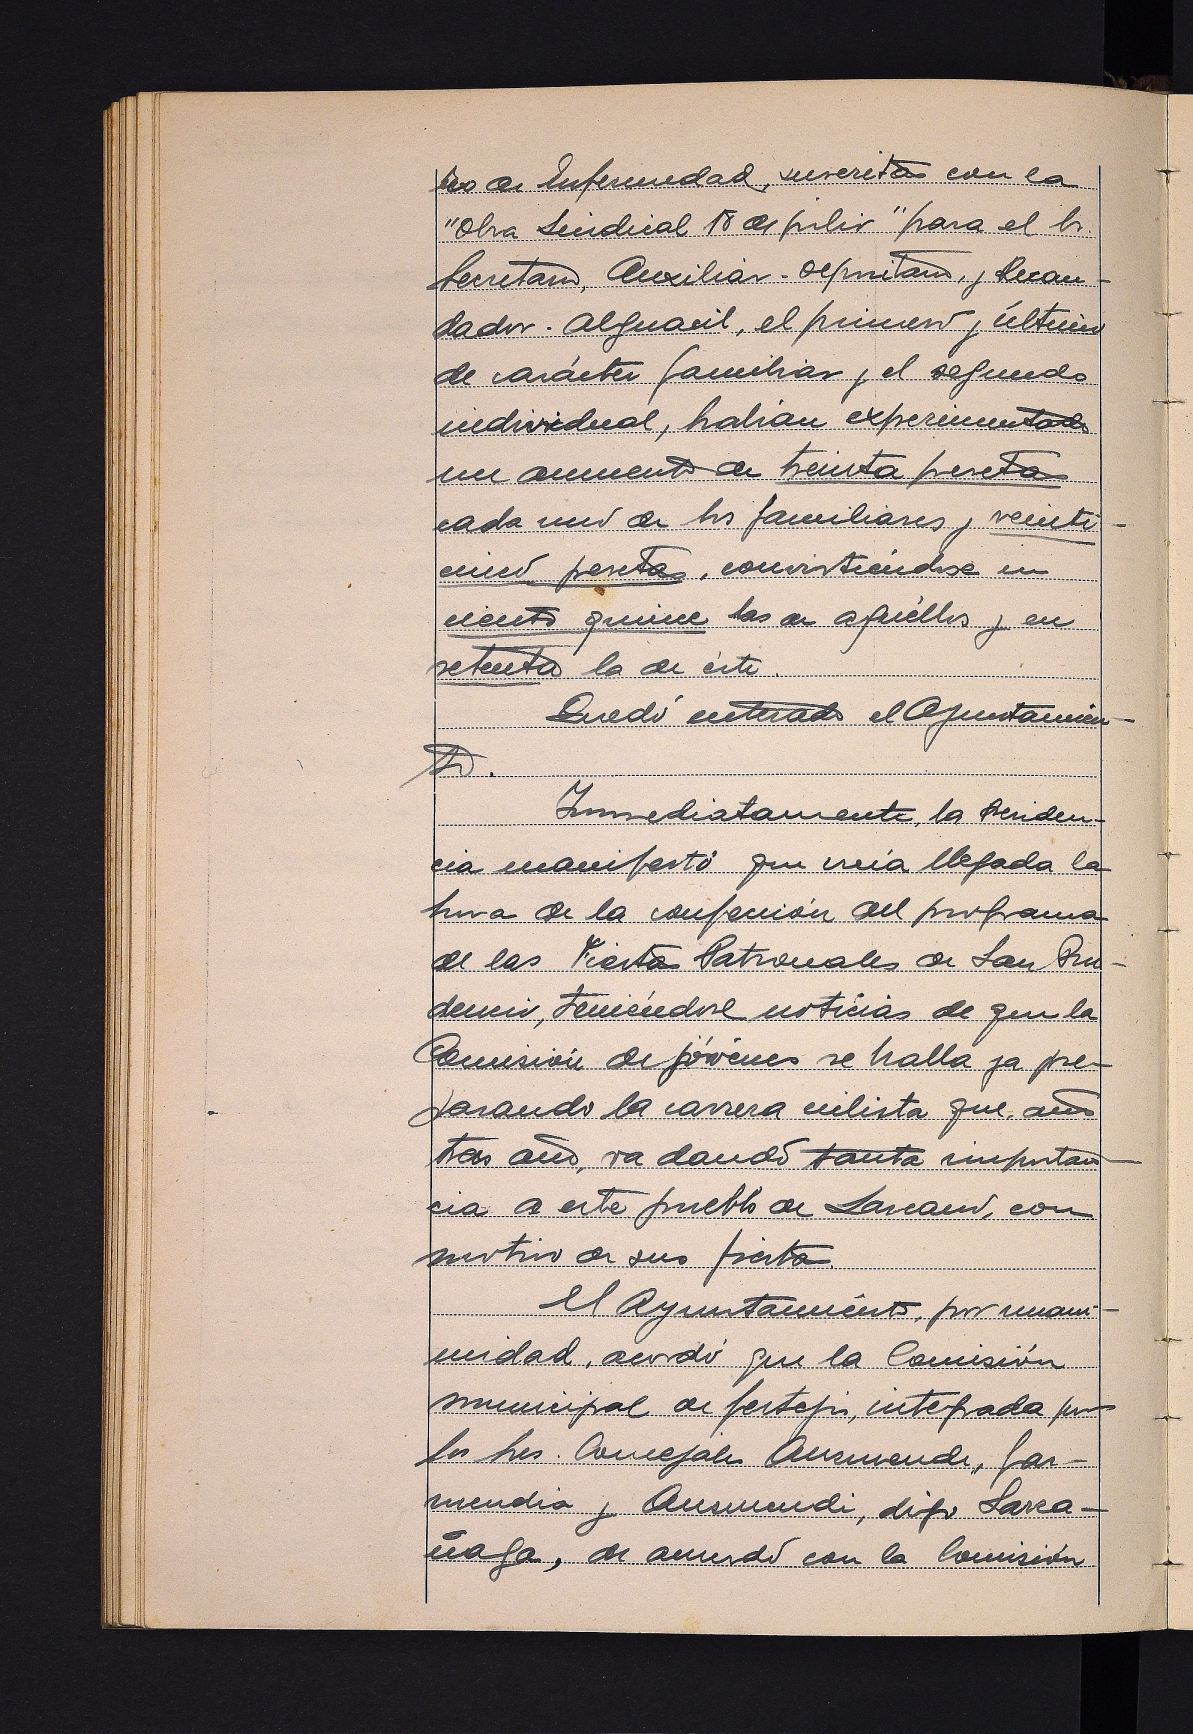 ro de Enfermedad, suscritas con la
"Obra Sindical 18 de julio" para el Sr.
Secretario, Auxiliar-depositario, y Recau-
dador-Alguacil, el primero y último
de carácter familiar y el segundo
individual, habían experimentado
un aumento de treinta pesetas
cada uno de los familiares y veinti-
cinco pesetas, convirtiéndose en
ciento quince las de aquéllos y en
setenta la de éste.
Quedó enterado el Ayuntamien-
to.
Inmediatamente, la Presiden-
cia manifestó que creía llegada la
hora de la confección del programa
de las Fiestas Patronales de San Pru-
dencio, teniéndose noticias de que la
Comisión de jóvenes se halla ya pre-
parando la carrera ciclista que, año
tras año, va dando tanta importan-
cia a este pueblo de Lazcano, con
motivo de sus fiestas.
El Ayuntamiento, por unani-
midad, acordó que la Comisión
municipal de festejos, integrada por
los Sres. Concejales Aursmendi, Gar-
mendia y Ausmendi, digo Larra-
ñaga, de acuerdo con la Comisión